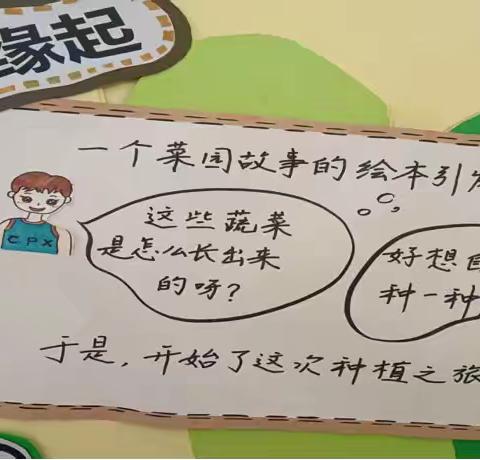 缘起
一个菜园故事的绘本引发
这些蔬菜
是怎么长出来
的呀？
CPX
好想自
种一种
于是，开始了这次种植之旅